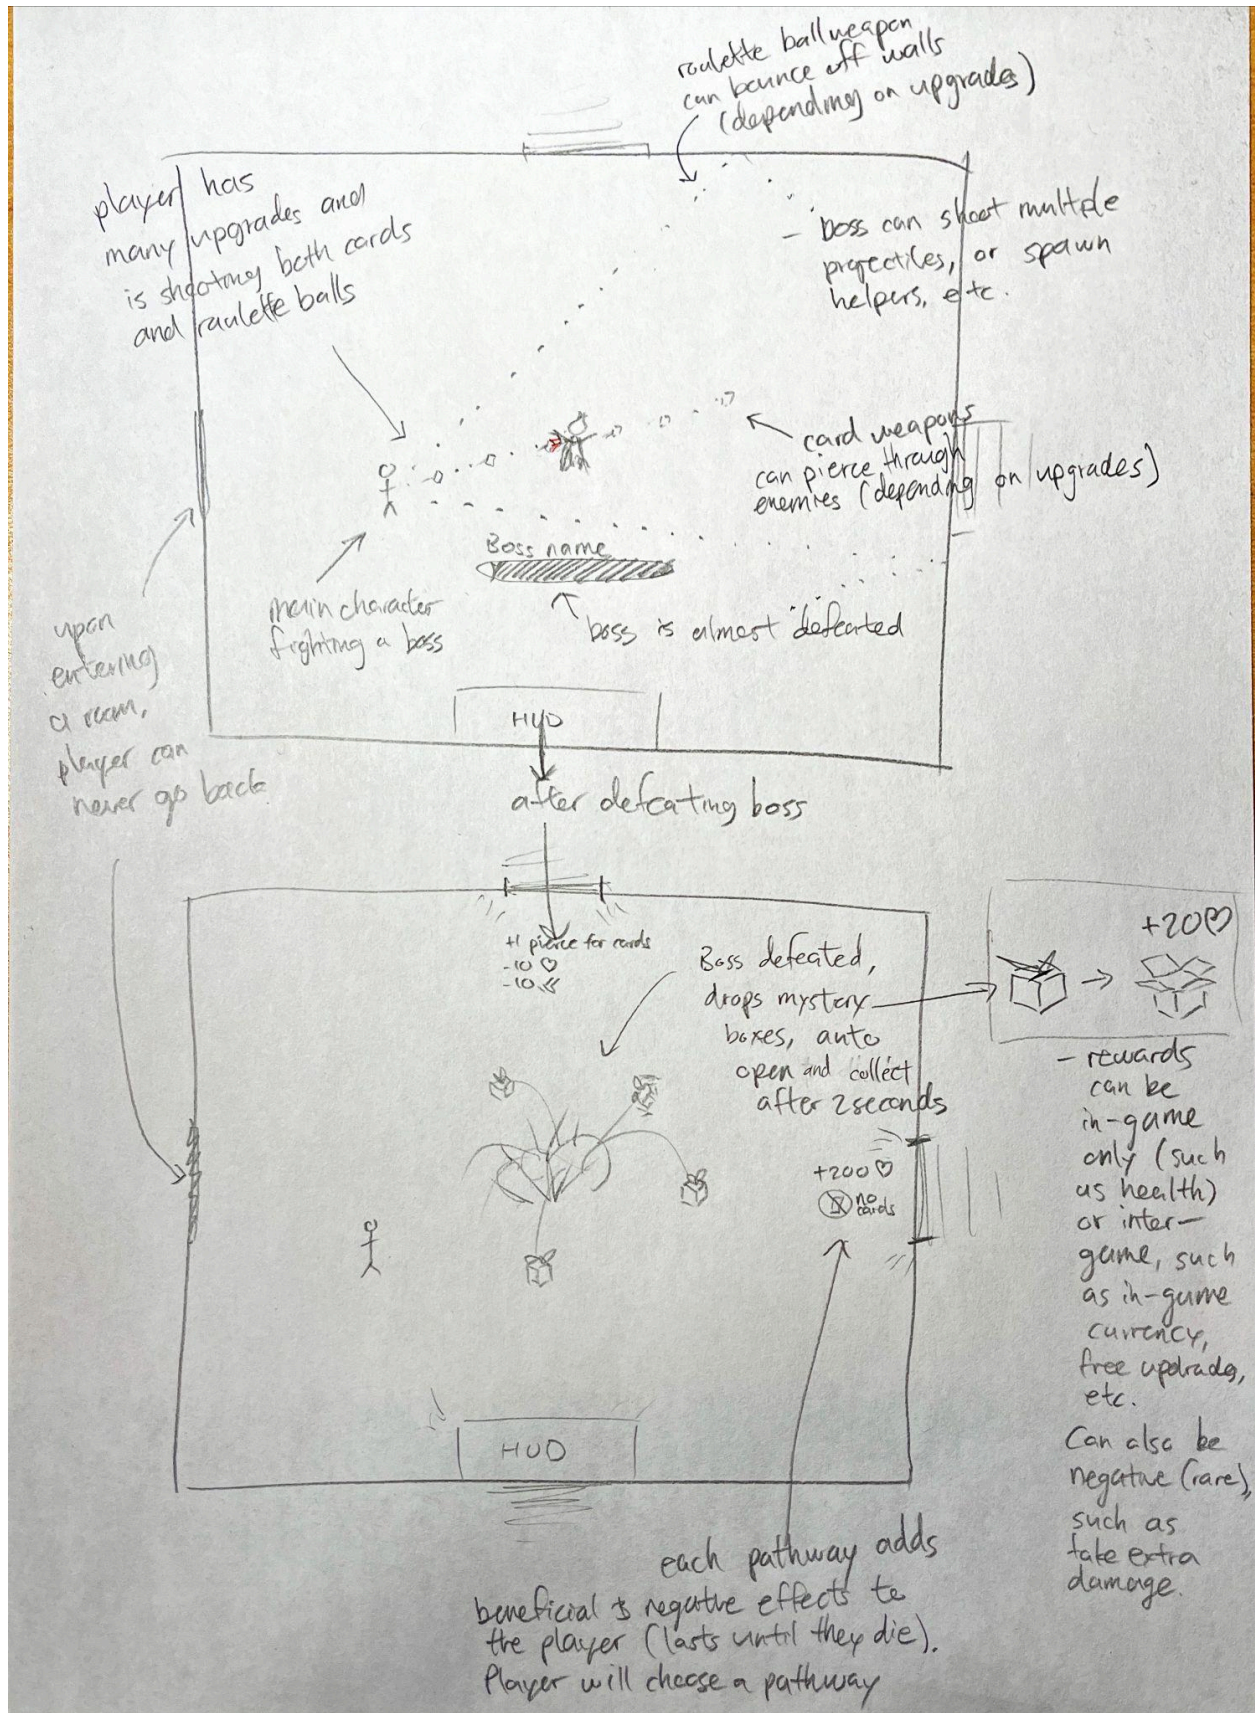 roulette ball weapon
can bounce off walls
(depending on upgrades)
player has
many upgrades and
is shooting both cards
and roulette balls
- boss can shoot multiple
projectiles, or spawn
helpers, etc.
card weapons
can pierce through
enemies (depending on upgrades)
Boss name
main character
fighting a boss
boss is almost defeated
upon
entering
a room,
player can
never go back
HUD
after defeating boss
+1 pierce for cards
-10 ♡
-10
Boss defeated,
drops mystery
boxes, auto
open and collect
after 2 seconds
+20♡
- rewards
can be
in-game
only (such
as health)
or inter-
game, such
as in-game
currency,
free updrades,
etc.
Can also be
negative (rare),
such as
take extra
damage.
+200♡
no
cards
HUD
each pathway adds
beneficial & negative effects to
the player (lasts until they die).
Player will choose a pathway